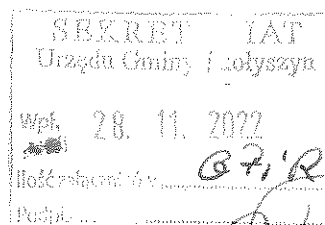 SEKRET IAT
Urzędu Gminy ołyszyn
Wpł. 28. 11. 2022
Ilość załączników
Podpis